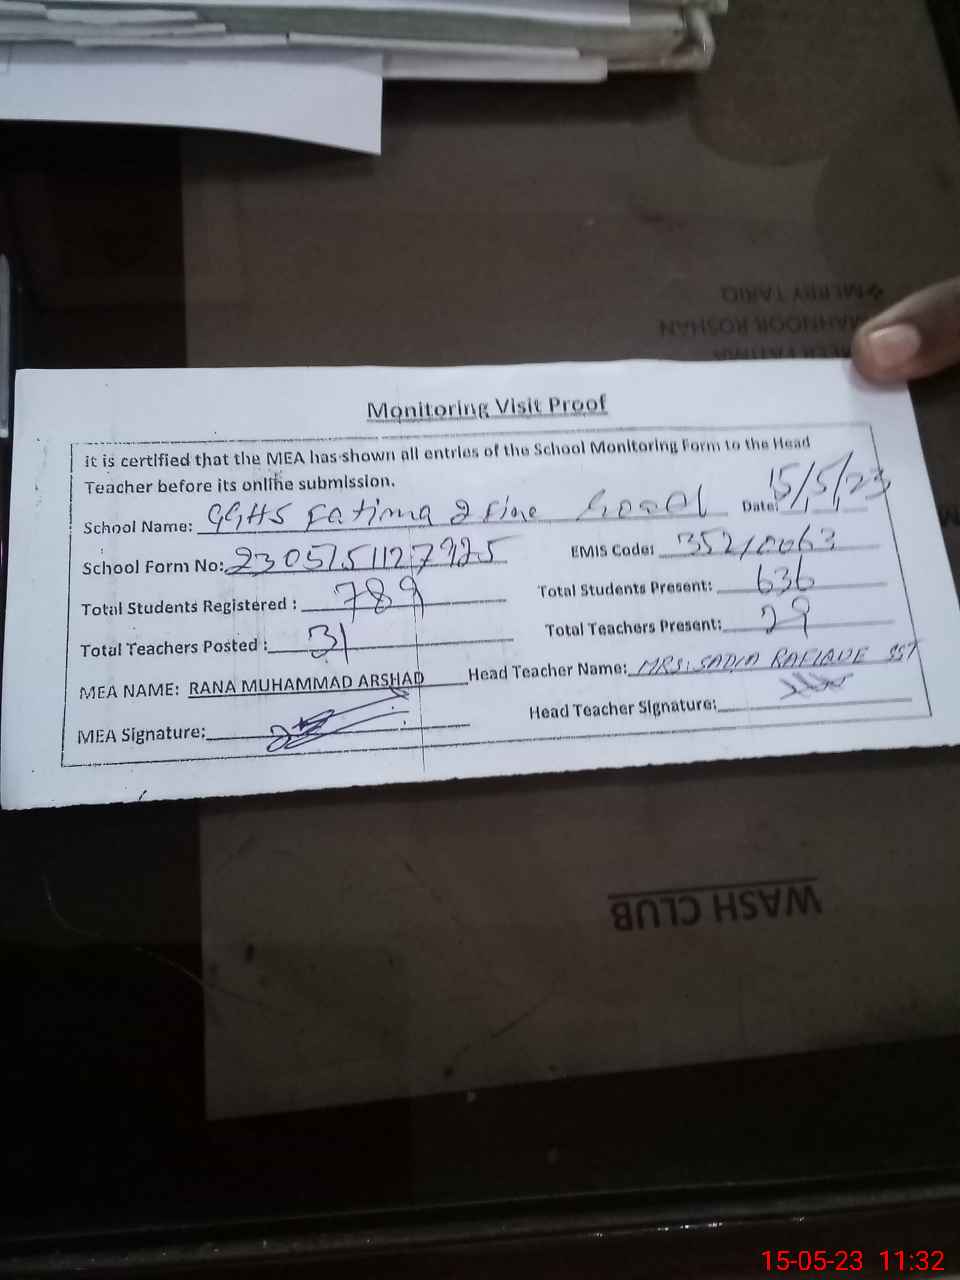 MERRY TARIQ
MAHNOOR ROSHAN
FATIMA
Monitoring Visit Proof
it is certified that the MEA has shown all entries of the School Monitoring Form to the Head
Teacher before its online submission.
School Name: GGHS Fatima Road Date: 15/5/23
School Form No: 2305151127925 EMIS Code: 35210063
Total Students Registered : 789 Total Students Present: 636
Total Teachers Posted : 31 Total Teachers Present: 29
MEA NAME: RANA MUHAMMAD ARSHAD Head Teacher Name: MRS. SADIA RAFIQUE SST
MEA Signature: Head Teacher Signature:
WASH CLUB
15-05-23 11:32